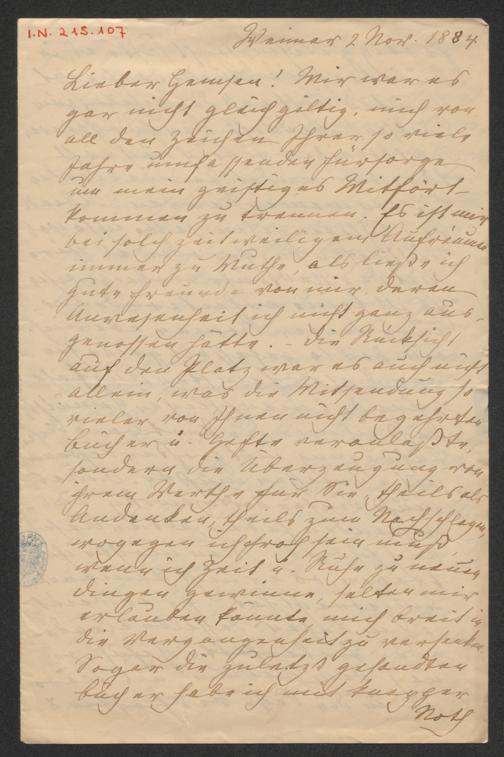 I.N. 215.107
Weimar 2 Nov. 1884
Lieber Hemsen! Mir war es
gar nicht gleichgiltig, mich von
all den Zeichen Ihrer so viele
Jahre umfassenden Fürsorge
um mein geistiges Mitfort-
kommen zu trennen. Es ist mir
bei solch zeitweiligem Aufräumen
immer zu Muthe, als ließe ich
gute Freunde von mir, deren
Anwesenheit ich nicht ganz aus-
genossen hätte. – Die Rücksicht
auf den Platz war es auch nicht
allein, was die Mitsendung so
vieler von Ihnen nicht begehrten
Bücher u. Hefte veranlaßte,
sondern die Überzeugung von
ihrem Werthe für Sie, theils als
Andenken, theils zum Nachschlagen,
wogegen ich froh sein muß,
wenn ich Zeit u. Ruhe zu neuen
Dingen gewinne, selten mir
erlauben könnte mich breit in
die Vergangenheit zu versenken.
Sogar die zuletzt gesandten
Bücher habe ich mit knapper
Noth